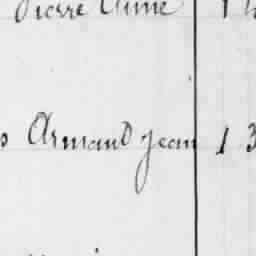 Pierre Aimé 1
Armand Jean 1 3